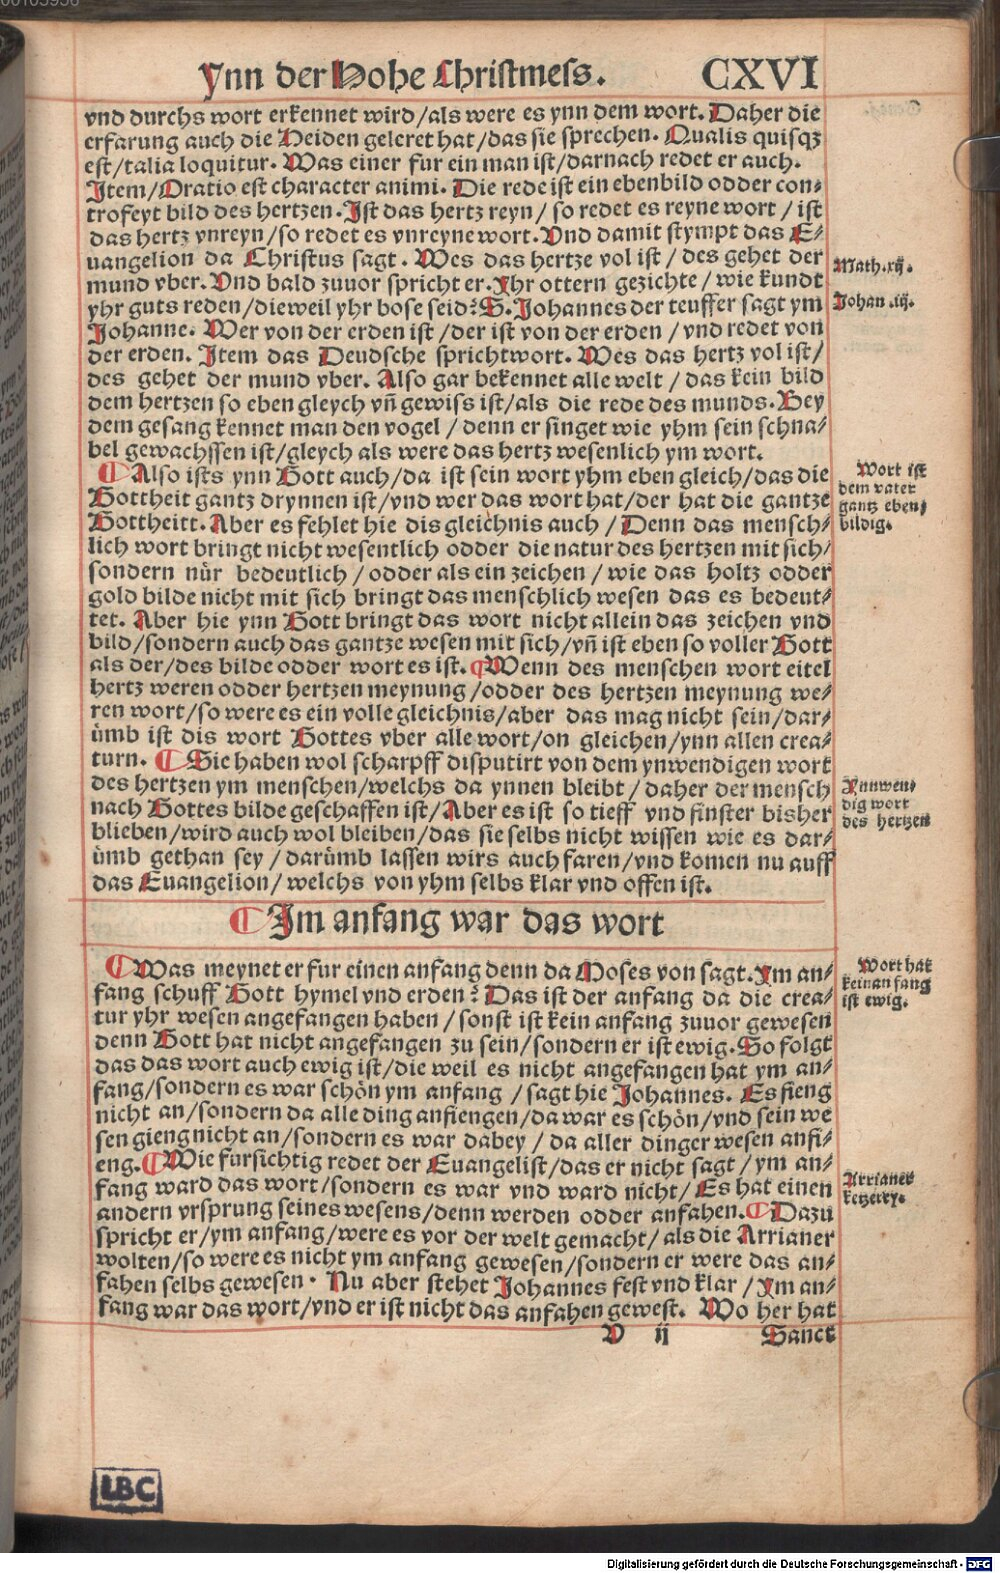 Ynn der Hohe Christmess. CXVI
vnd durchs wort erkennet wird/als were es ynn dem wort. Daher die
erfarung auch die Heiden geleret hat/das sie sprechen. Qualis quisqꝫ
est/talia loquitur. Was einer fur ein man ist/darnach redet er auch.
Item/Oratio est character animi. Die rede ist ein ebenbild odder con⸗
trofeyt bild des hertzen. Ist das hertz reyn/ so redet es reyne wort/ ist
das hertz vnreyn/so redet es vnreyne wort. Vnd damit stympt das E⸗
uangelion da Christus sagt. Wes das hertze vol ist/ des gehet der
mund vber. Vnd bald zuuor spricht er. Ihr ottern gezichte/ wie kundt
yhr guts reden/dieweil yhr bose seid? S. Johannes der teuffer sagt ym
Johanne. Wer von der erden ist/der ist von der erden/ vnd redet von
der erden. Item das Deudsche sprichtwort. Wes das hertz vol ist/
des gehet der mund vber. Also gar bekennet alle welt/ das kein bild
dem hertzen so eben gleych vñ gewiss ist/als die rede des munds. Bey
dem gesang kennet man den vogel/ denn er singet wie yhm sein schna⸗
bel gewachssen ist/gleych als were das hertz wesenlich ym wort.
¶ Also ists ynn Gott auch/da ist sein wort yhm eben gleich/das die
Gottheit gantz drynnen ist/vnd wer das wort hat/der hat die gantze
Gottheitt. Aber es fehlet hie dis gleichnis auch/ Denn das mensch⸗
lich wort bringt nicht wesentlich odder die natur des hertzen mit sich/
sondern nůr bedeutlich/odder als ein zeichen/ wie das holtz odder
gold bilde nicht mit sich bringt das menschlich wesen das es bedeut⸗
tet. Aber hie ynn Gott bringt das wort nicht allein das zeichen vnd
bild/sondern auch das gantze wesen mit sich/vñ ist eben so voller Gott
als der/des bilde odder wort es ist. ¶Wenn des menschen wort eitel
hertz weren odder hertzen meynung/odder des hertzen meynung we⸗
ren wort/so were es ein volle gleichnis/aber das mag nicht sein/dar⸗
ůmb ist dis wort Gottes vber alle wort/on gleichen/ynn allen crea⸗
turn. ¶ Sie haben wol scharpff disputirt von dem ynwendigen wort
des hertzen ym menschen/welchs da ynnen bleibt/ daher der mensch
nach Gottes bilde geschaffen ist/Aber es ist so tieff vnd finster bisher
blieben/wird auch wol bleiben/das sie selbs nicht wissen wie es dar⸗
ůmb gethan sey/ darůmb lassen wirs auch faren/vnd komen nu auff
das Euangelion/ welchs von yhm selbs klar vnd offen ist.
¶ Im anfang war das wort
¶Was meynet er fur einen anfang denn da Moses von sagt. Im an⸗
fang schuff Gott hymel vnd erden? Das ist der anfang da die crea⸗
tur yhr wesen angefangen haben/ sonst ist kein anfang zuuor gewesen
denn Gott hat nicht angefangen zu sein/sondern er ist ewig. So folgt
das das wort auch ewig ist/die weil es nicht angefangen hat ym an⸗
fang/sondern es war schön ym anfang/ sagt hie Johannes. Es fieng
nicht an/sondern da alle ding anfiengen/da war es schön/vnd sein we
sen gieng nicht an/sondern es war dabey/ da aller dinger wesen anfi⸗
eng. ¶Wie fursichtig redet der Euangelist/das er nicht sagt/ ym an⸗
fang ward das wort/sondern es war vnd ward nicht/ Es hat einen
andern vrsprung seines wesens/denn werden odder anfahen. ¶Dazu
spricht er/ym anfang/were es vor der welt gemacht/als die Arrianer
wolten/so were es nicht ym anfang gewesen/sondern er were das an⸗
fahen selbs gewesen. Nu aber stehet Johannes fest vnd klar/ Im an⸗
fang war das wort/vnd er ist nicht das anfahen gewest. Wo her hat
V ij Sanct
Math.xij.
Johan.iij.
Wort ist
dem vater
gantz eben⸗
bildig.
Ynnwen⸗
dig wort
des hertzen
Wort hat
kein anfang
ist ewig.
Arrianer
ketzerey.
LBC
Digitalisierung gefördert durch die Deutsche Forschungsgemeinschaft - DFG